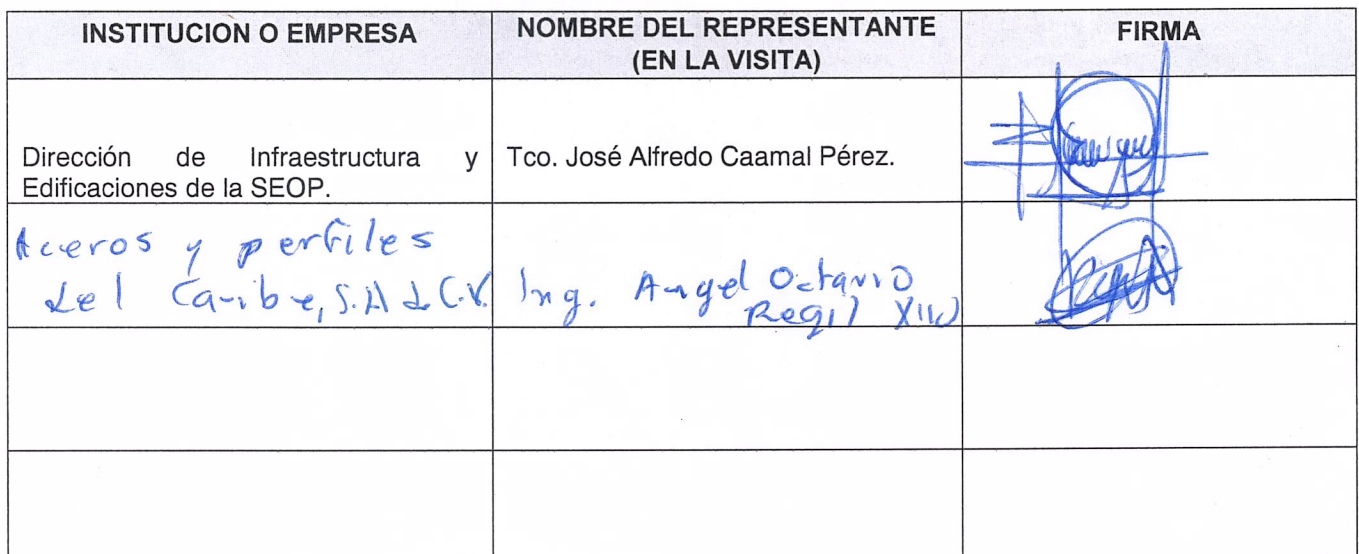 INSTITUCION O EMPRESA
NOMBRE DEL REPRESENTANTE
(EN LA VISITA)
FIRMA
Dirección de Infraestructura y
Edificaciones de la SEOP.
Tco. José Alfredo Caamal Pérez.
Aceros y perfiles
del Caribe, S.A de C.V.
Ing. Angel Octavio
Regil